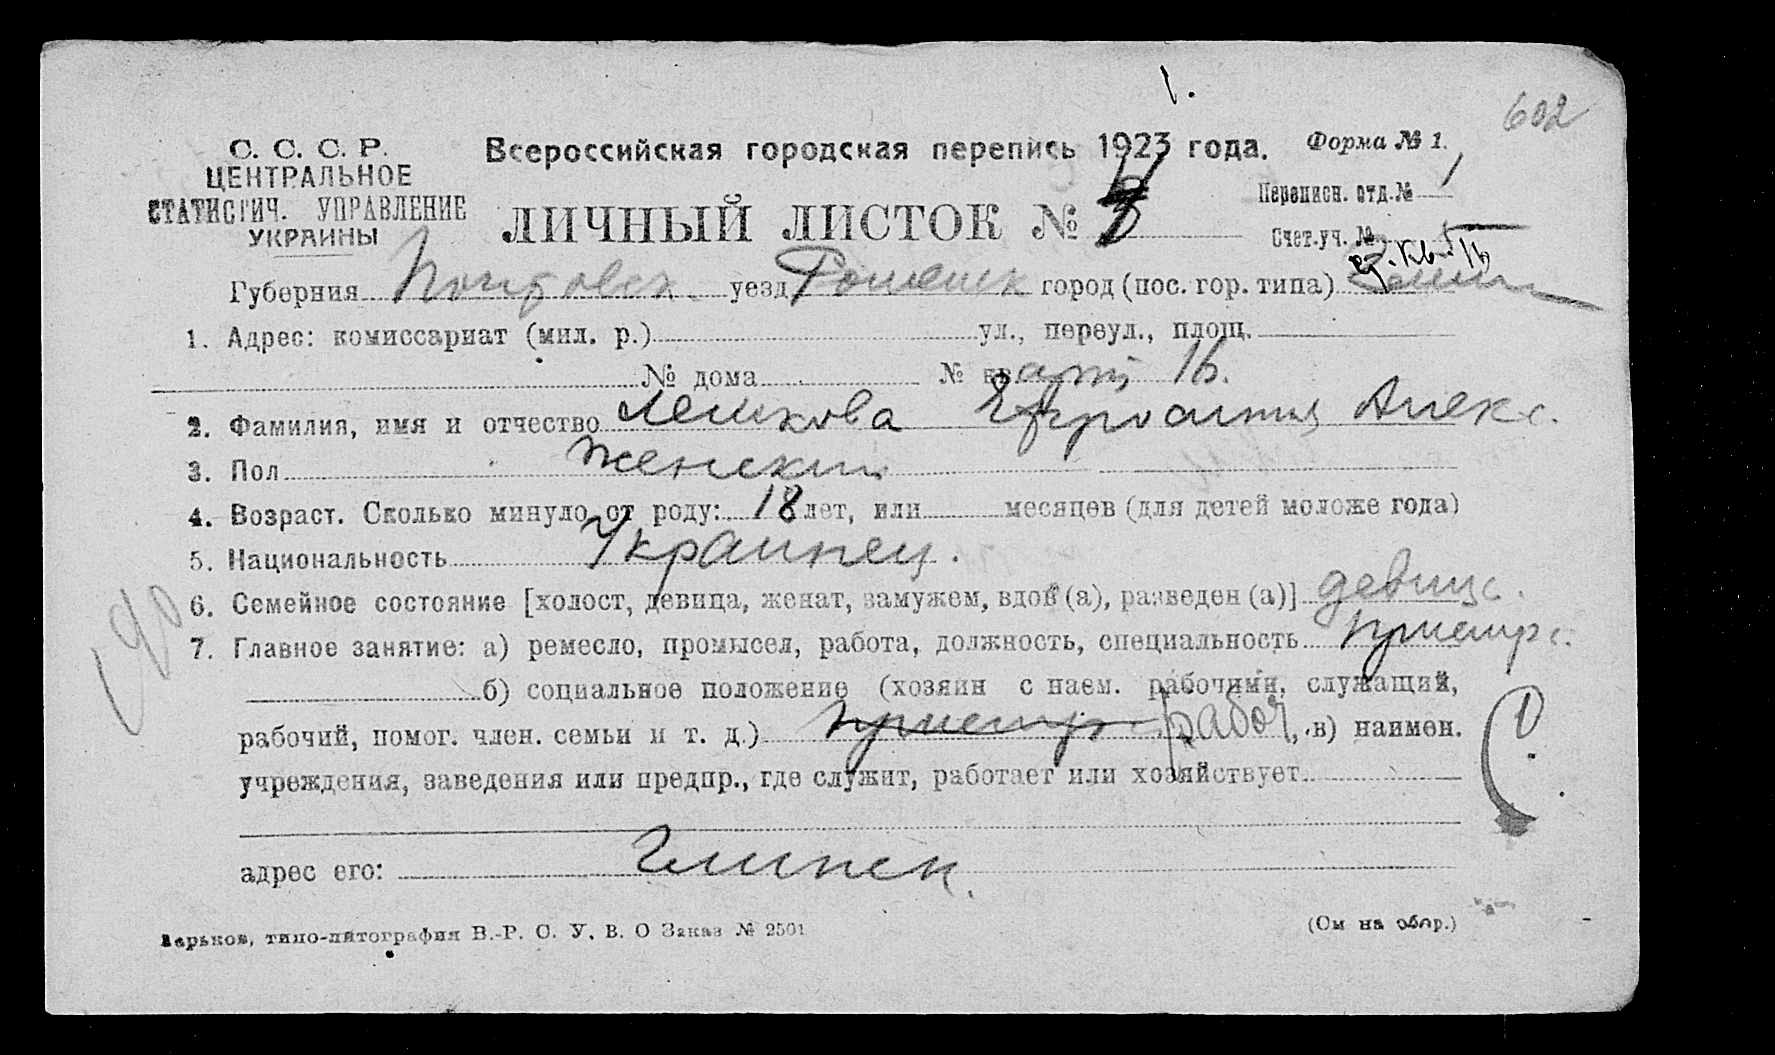 1.
602
С. С. С. Р.
ЦЕНТРАЛЬНОЕ
СТАТИСТИЧ. УПРАВЛЕНИЕ
УКРАИНЫ
Всероссийская городская перепись 1923 года.
Форма № 1.
ЛИЧНЫЙ ЛИСТОК №
Переписн. отд. № 1
Счет. уч. №
Губерния Полтовск. уезд Роменск город (пос. гор. типа)
1. Адрес: комиссариат (мил. р.) ул., переул., площ.
№ дома № кварт 16.
2. Фамилия, имя и отчество Лешкова Ефросиния Алекс.
3. Пол Женский
4. Возраст. Сколько минуло от роду: 18 лет, или месяцев (для детей моложе года)
5. Национальность Украинец.
6. Семейное состояние [холост, девица, женат, замужем, вдов (а), разведен (а)] девица.
7. Главное занятие: а) ремесло, промысел, работа, должность, специальность
б) социальное положение (хозяин с наем. рабочими, служащий,
рабочий, помог. член. семьи и т. д.) рабоч, в) наимен.
учреждения, заведения или предпр., где служит, работает или хозяйствует
адрес его: Глинск.
Харьков, типо-литография В.-Р. С. У. В. О Заказ № 2501
(См на обор.)
190